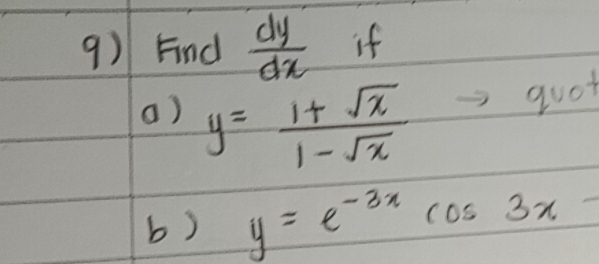 9) Find dy/dx if
a) y = (1 + √x)/(1 - √x) → quot
b) y = e^(-3x) cos 3x -